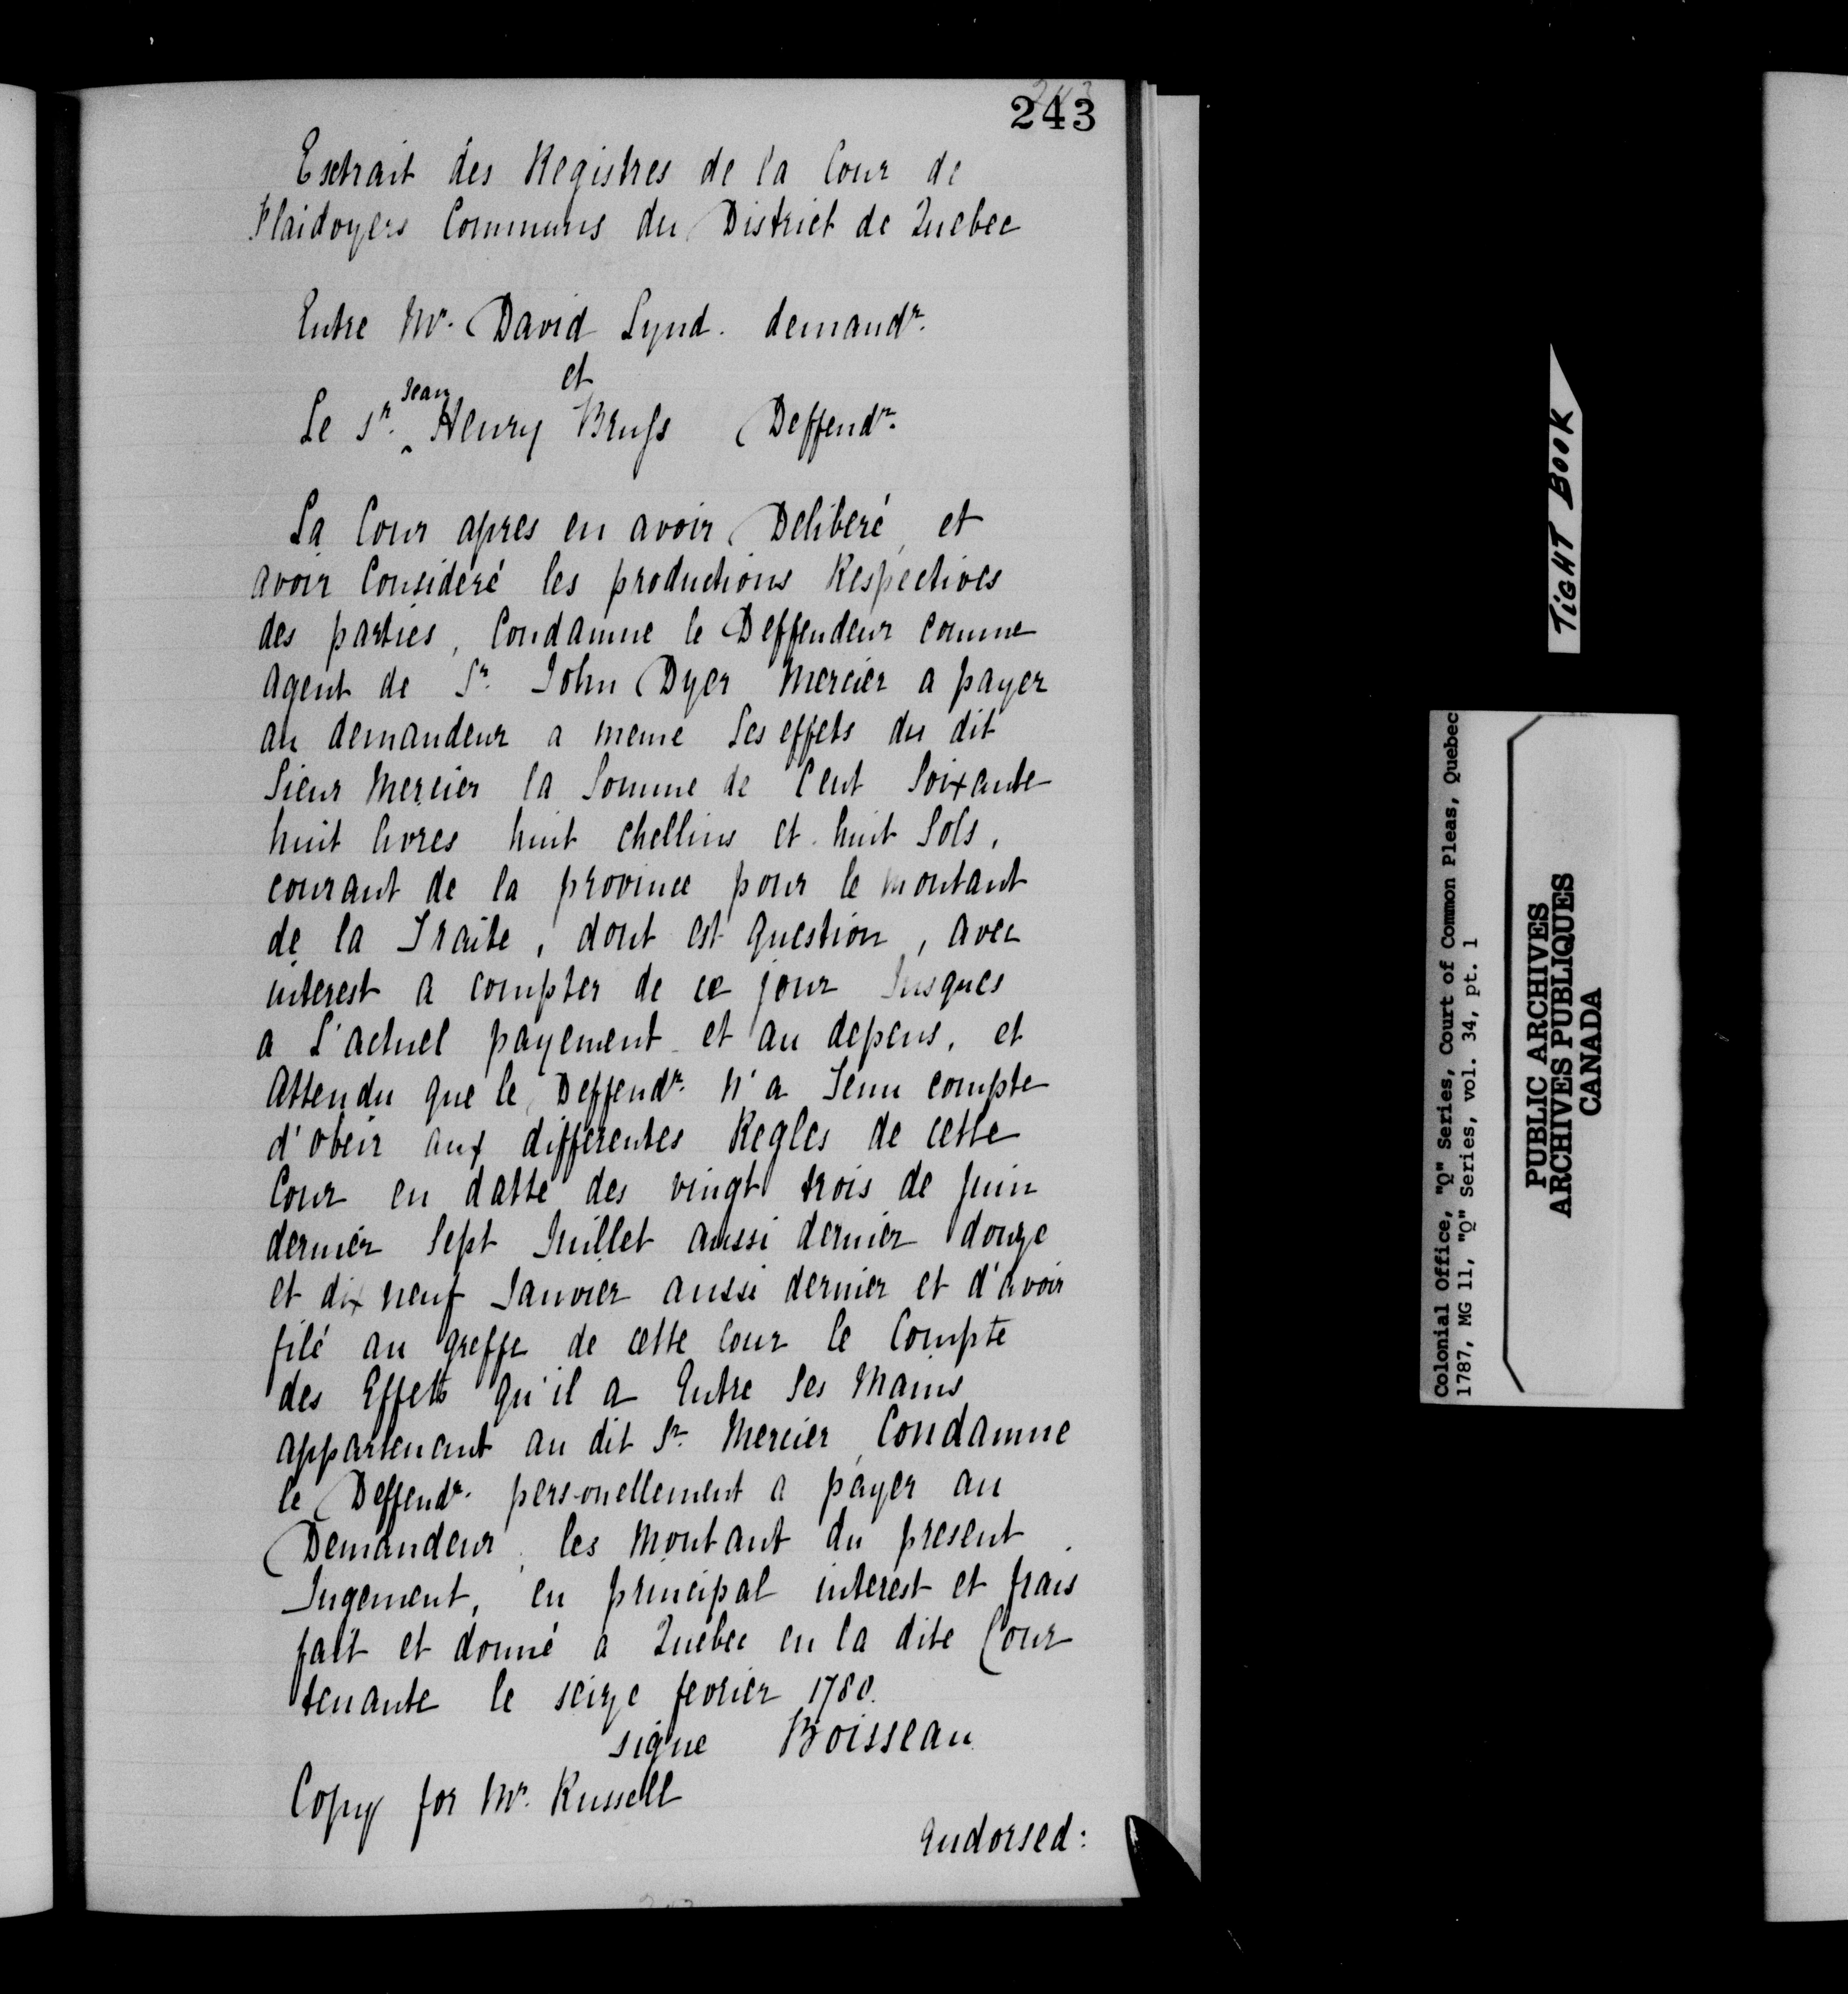 243
243
Extrait des Registres de la Cour de
Plaidoyers Communs du District de Quebec
Entre Mr. David Lynd. demandr.
et
Le Sr. ^Jean Henry Bruss Deffendr.
La Cour apres en avoir Deliberé, et
avoir Consideré les productions Respectives
des parties, Condamne le Deffendeur comme
agent de Sr. John Dyer Mercier a payer
au demandeur a meme Les effets du dit
Sieur Mercier la Somme de Cent Soixante
huit livres huit chellins et huit Sols,
courant de la province pour le montant
de la Traite, dont est question, avec
interest a compter de ce jour Jusques
a L'actuel payement et au depens, et
attendu que le Deffendr. N'a Tenu compte
d'obeir aux differentes Regles de cette
Cour en datte des vingt trois de Juin
dernier Sept Juillet aussi dernier douze
et dix neuf Janvier aussi dernier et d'avoir
filé au greffe de cette Cour le Compte
des Effets qu'il a Entre Ses Mains
appartenant au dit Sr. Mercier, Condamne
le Deffendr. personellement a payer au
Demandeur les Montant du present
Jugement, en principal interest et frais
fait et donné a Quebec en la dite Cour
tenante le seize fevrier 1780.
signe Boisseau
Copy for Mr. Russell
Endorsed:
TIGHT BOOK
Colonial Office, "Q" Series, Court of Common Pleas, Quebec
1787, MG 11, "Q" Series, vol. 34, pt. 1
PUBLIC ARCHIVES
ARCHIVES PUBLIQUES
CANADA